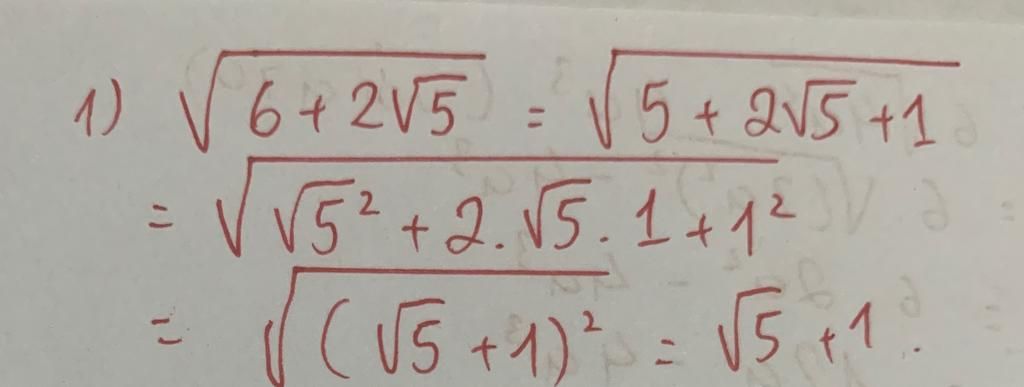 1) √(6 + 2√5) = √(5 + 2√5 + 1)
= √(√5² + 2.√5.1 + 1²)
= √((√5 + 1)²) = √5 + 1.